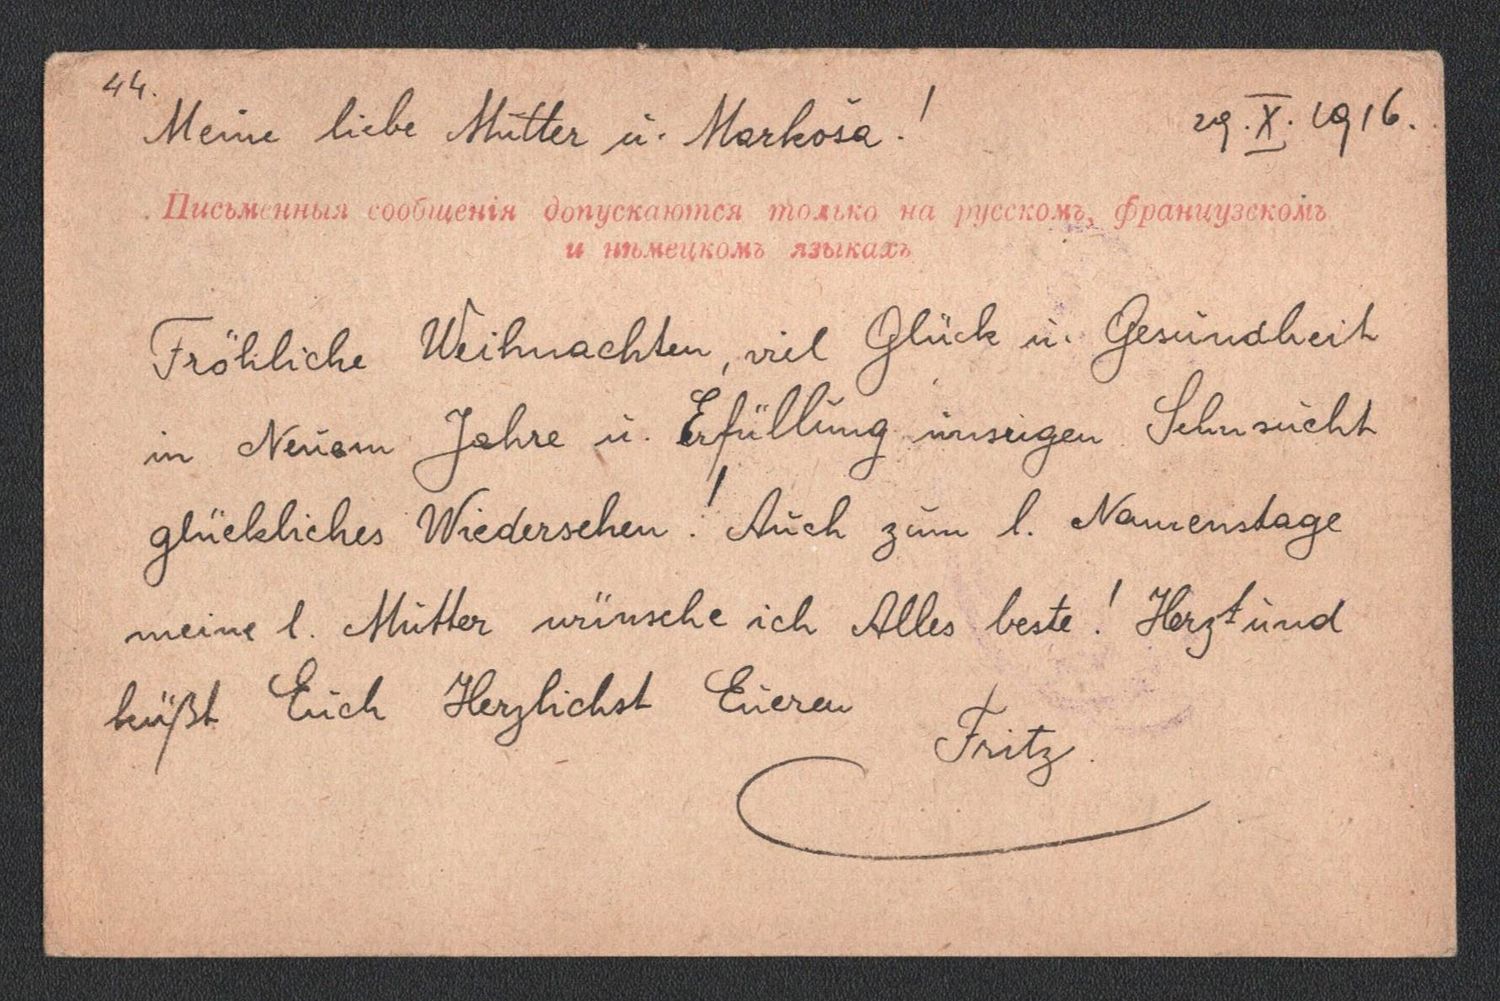 44.
Meine liebe Mutter u. Markoša! 29.X.1916.
Письменныя сообщенія допускаются только на русскомъ, французскомъ
и нѣмецкомъ языкахъ
Fröhliche Weihnachten, viel Glück u. Gesundheit
in Neuem Jahre u. Erfüllung unsrigen Sehnsucht
glückliches Wiedersehen! Auch zum l. Namenstage
meine l. Mutter wünsche ich Alles beste! Herzt und
küßt Euch Herzlichst Eueren
Fritz.